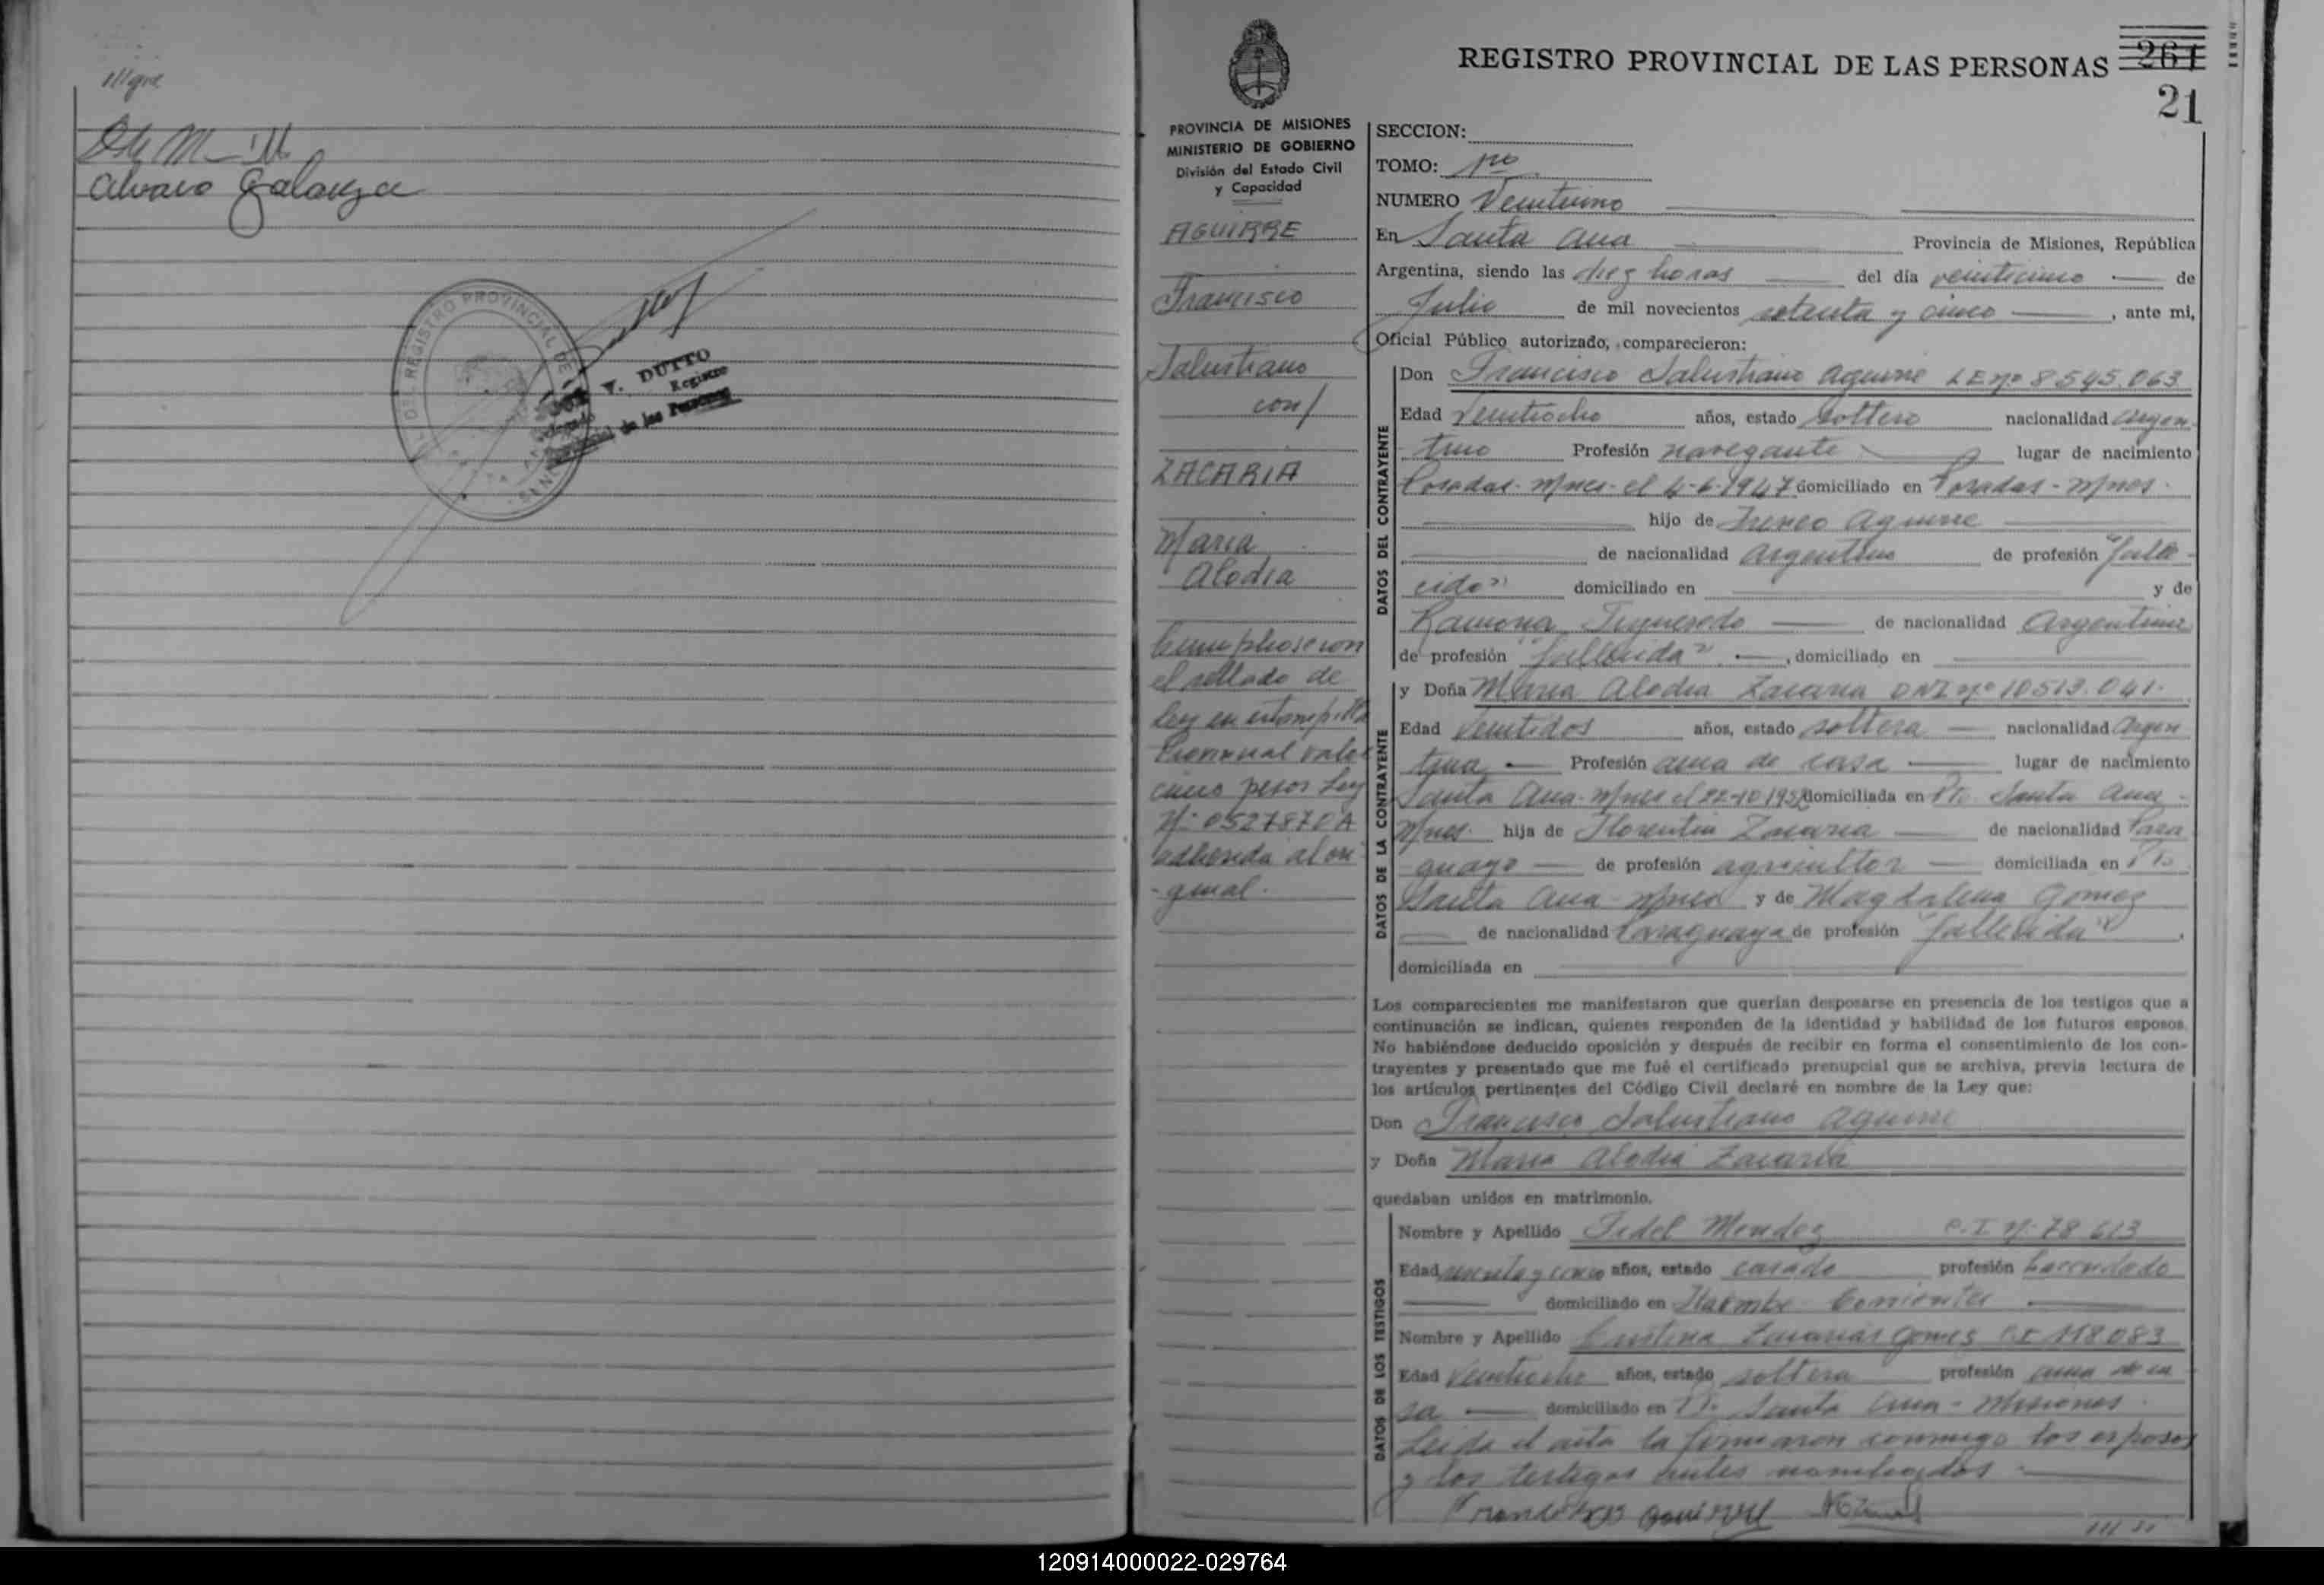 Alvaro Galarza
REGISTRO PROVINCIAL DE
V. DUTTO
Registro
de las Personas
REGISTRO PROVINCIAL DE LAS PERSONAS 261
21
PROVINCIA DE MISIONES
MINISTERIO DE GOBIERNO
División del Estado Civil
y Capacidad
AGUIRRE
Francisco
Salustiano
con/
ZACARIA
Maria
Alodia
Cumpliose con
el sellado de
ley en estampilla
valor
cinco pesos Ley
Nº 0527870A
adherida al ori
-ginal.
SECCION:
TOMO: 1ro
NUMERO Veintiuno
En Santa Ana Provincia de Misiones, República
Argentina, siendo las diez horas del día veinticinco de
Julio de mil novecientos setenta y cinco, ante mi,
Oficial Público autorizado, comparecieron:
DATOS DEL CONTRAYENTE
Don Francisco Salustiano Aguirre LE nº 8.545.063
Edad Veintiocho años, estado soltero nacionalidad Argen
tino Profesión navegante lugar de nacimiento
Posadas-Mnes-el 4-6-1947 domiciliado en Posadas-Mnes.
hijo de Ireneo Aguirre
de nacionalidad Argentino de profesión "falle-
cido" domiciliado en y de
Ramona Figueredo de nacionalidad Argentina
de profesión "fallecida", domiciliado en
DATOS DE LA CONTRAYENTE
y Doña Maria Alodia Zacaria DNI nº 10.513.041.
Edad Veintidos años, estado soltera nacionalidad Argen
tina Profesión ama de casa lugar de nacimiento
Santa Ana-Mnes el 22-10-1952 domiciliada en Pto Santa Ana-
Mnes. hija de Florentin Zacaria de nacionalidad Para
guayo de profesión agricultor domiciliada en Pto
Santa Ana-Mnes y de Magdalena Gomez
de nacionalidad Paraguaya de profesión "fallecida",
domiciliada en
Los comparecientes me manifestaron que querían desposarse en presencia de los testigos que a
continuación se indican, quienes responden de la identidad y habilidad de los futuros esposos.
No habiéndose deducido oposición y después de recibir en forma el consentimiento de los con-
trayentes y presentado que me fué el certificado prenupcial que se archiva, previa lectura de
los artículos pertinentes del Código Civil declaré en nombre de la Ley que:
Don Francisco Salustiano Aguirre
y Doña Maria Alodia Zacaria
quedaban unidos en matrimonio.
DATOS DE LOS TESTIGOS
Nombre y Apellido Fidel Mendez C.I. nº 78.613
Edad y cinco años, estado casado profesión hacendado
domiciliado en Itaembe Corrientes
Nombre y Apellido Cristina Zacarias Gomes C.I 118.083
Edad Veintiocho años, estado soltera profesión ama de ca
sa domiciliado en Pto. Santa Ana-Misiones.
Leida el acta la firmaron conmigo los esposos
y los testigos antes nombrados.
120914000022-029764